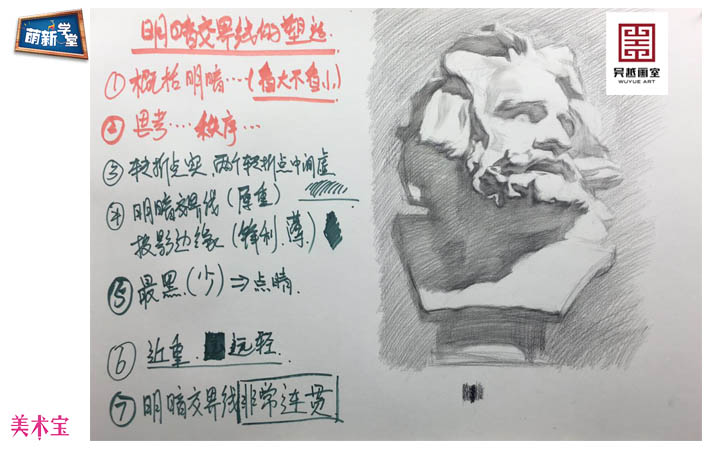 萌新学堂
明暗交界线的塑造
①概括明暗…(看大不看小)
②思考…秩序…
③转折点实、两个转折点中间虚
④明暗交界线(厚重)
投影边缘(锋利.薄.)
⑤最黑.(少)⇒点睛.
⑥近重. 远轻.
⑦明暗交界线非常连贯
吴越画室
WUYUE ART
美术宝